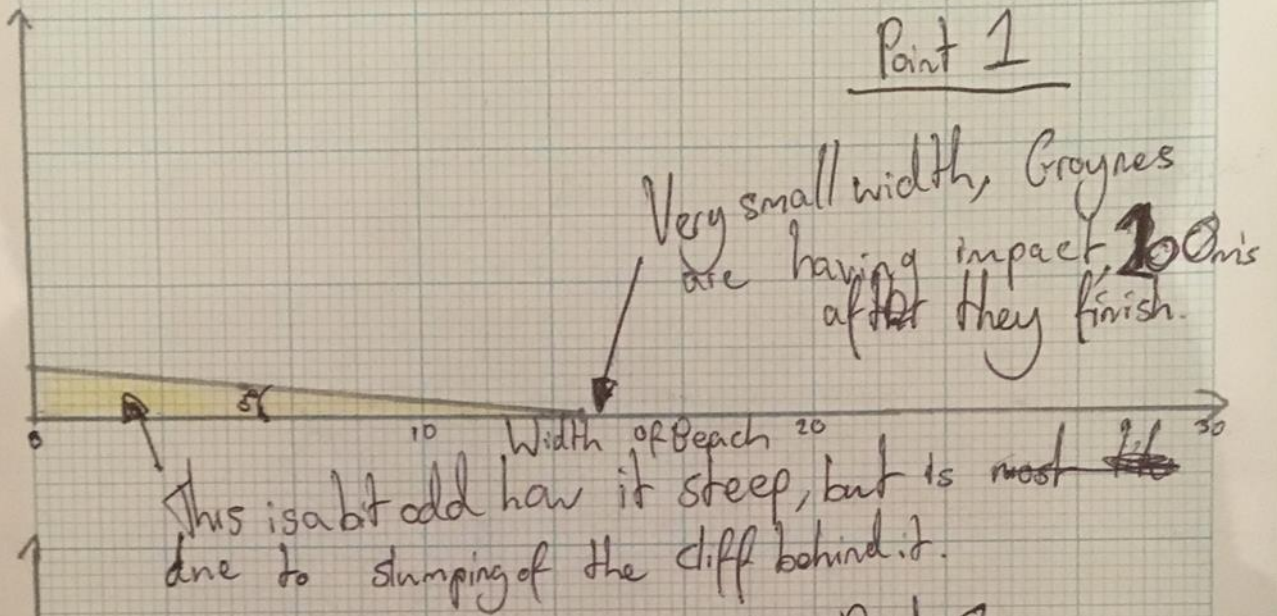 Point 1
Very small width, Groynes
are having impact, 100m's
after they finish.
5
0 10 20 30
Width of Beach
This is a bit odd how it steep, but is most
due to slumping of the cliff behind it.